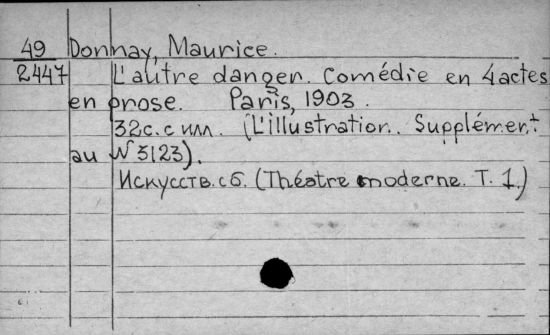 49 Donnay, Maurice.
2447 L'autre danger. Comédie en 4 actes
en prose. Paris, 1903.
32 с. с илл. (L'illustration. Supplément
au N 3123).
Искусств. сб. (Théatre moderne. T. 1.)